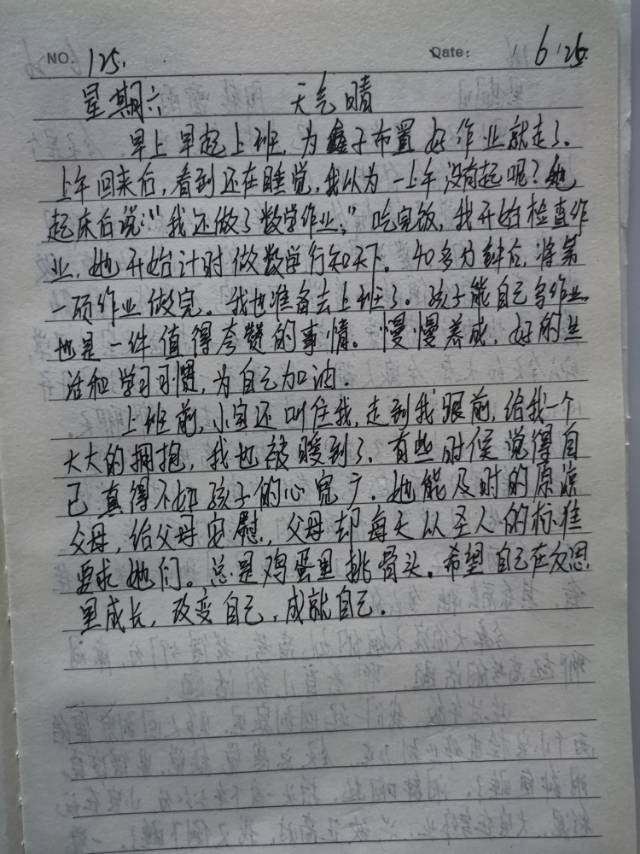 NO. 125. Date: 6.25.
星期六 天气晴
早上早起上班,为孩子布置好作业就走了。
上午回来后,看到还在睡觉,我以为一上午没有起呢?她
起床后说:“我还做了数学作业。”吃完饭,我开始检查作
业,她开始计时做数学行知天下。40多分钟后,将第
一项作业做完。我也准备去上班了。孩子能自己写作业
也是一件值得夸赞的事情。慢慢养成,好的生
活和学习习惯,为自己加油.
上班前,小宝还叫住我,走到我跟前,给我一个
大大的拥抱,我也被暖到了.有些时侯觉得自
己真得不如孩子的心宽广.她能及时的原谅
父母,给父母安慰,父母却每天以圣人的标准
要求她们。总是鸡蛋里挑骨头。希望自己在反思
里成长,改变自己,成就自己.